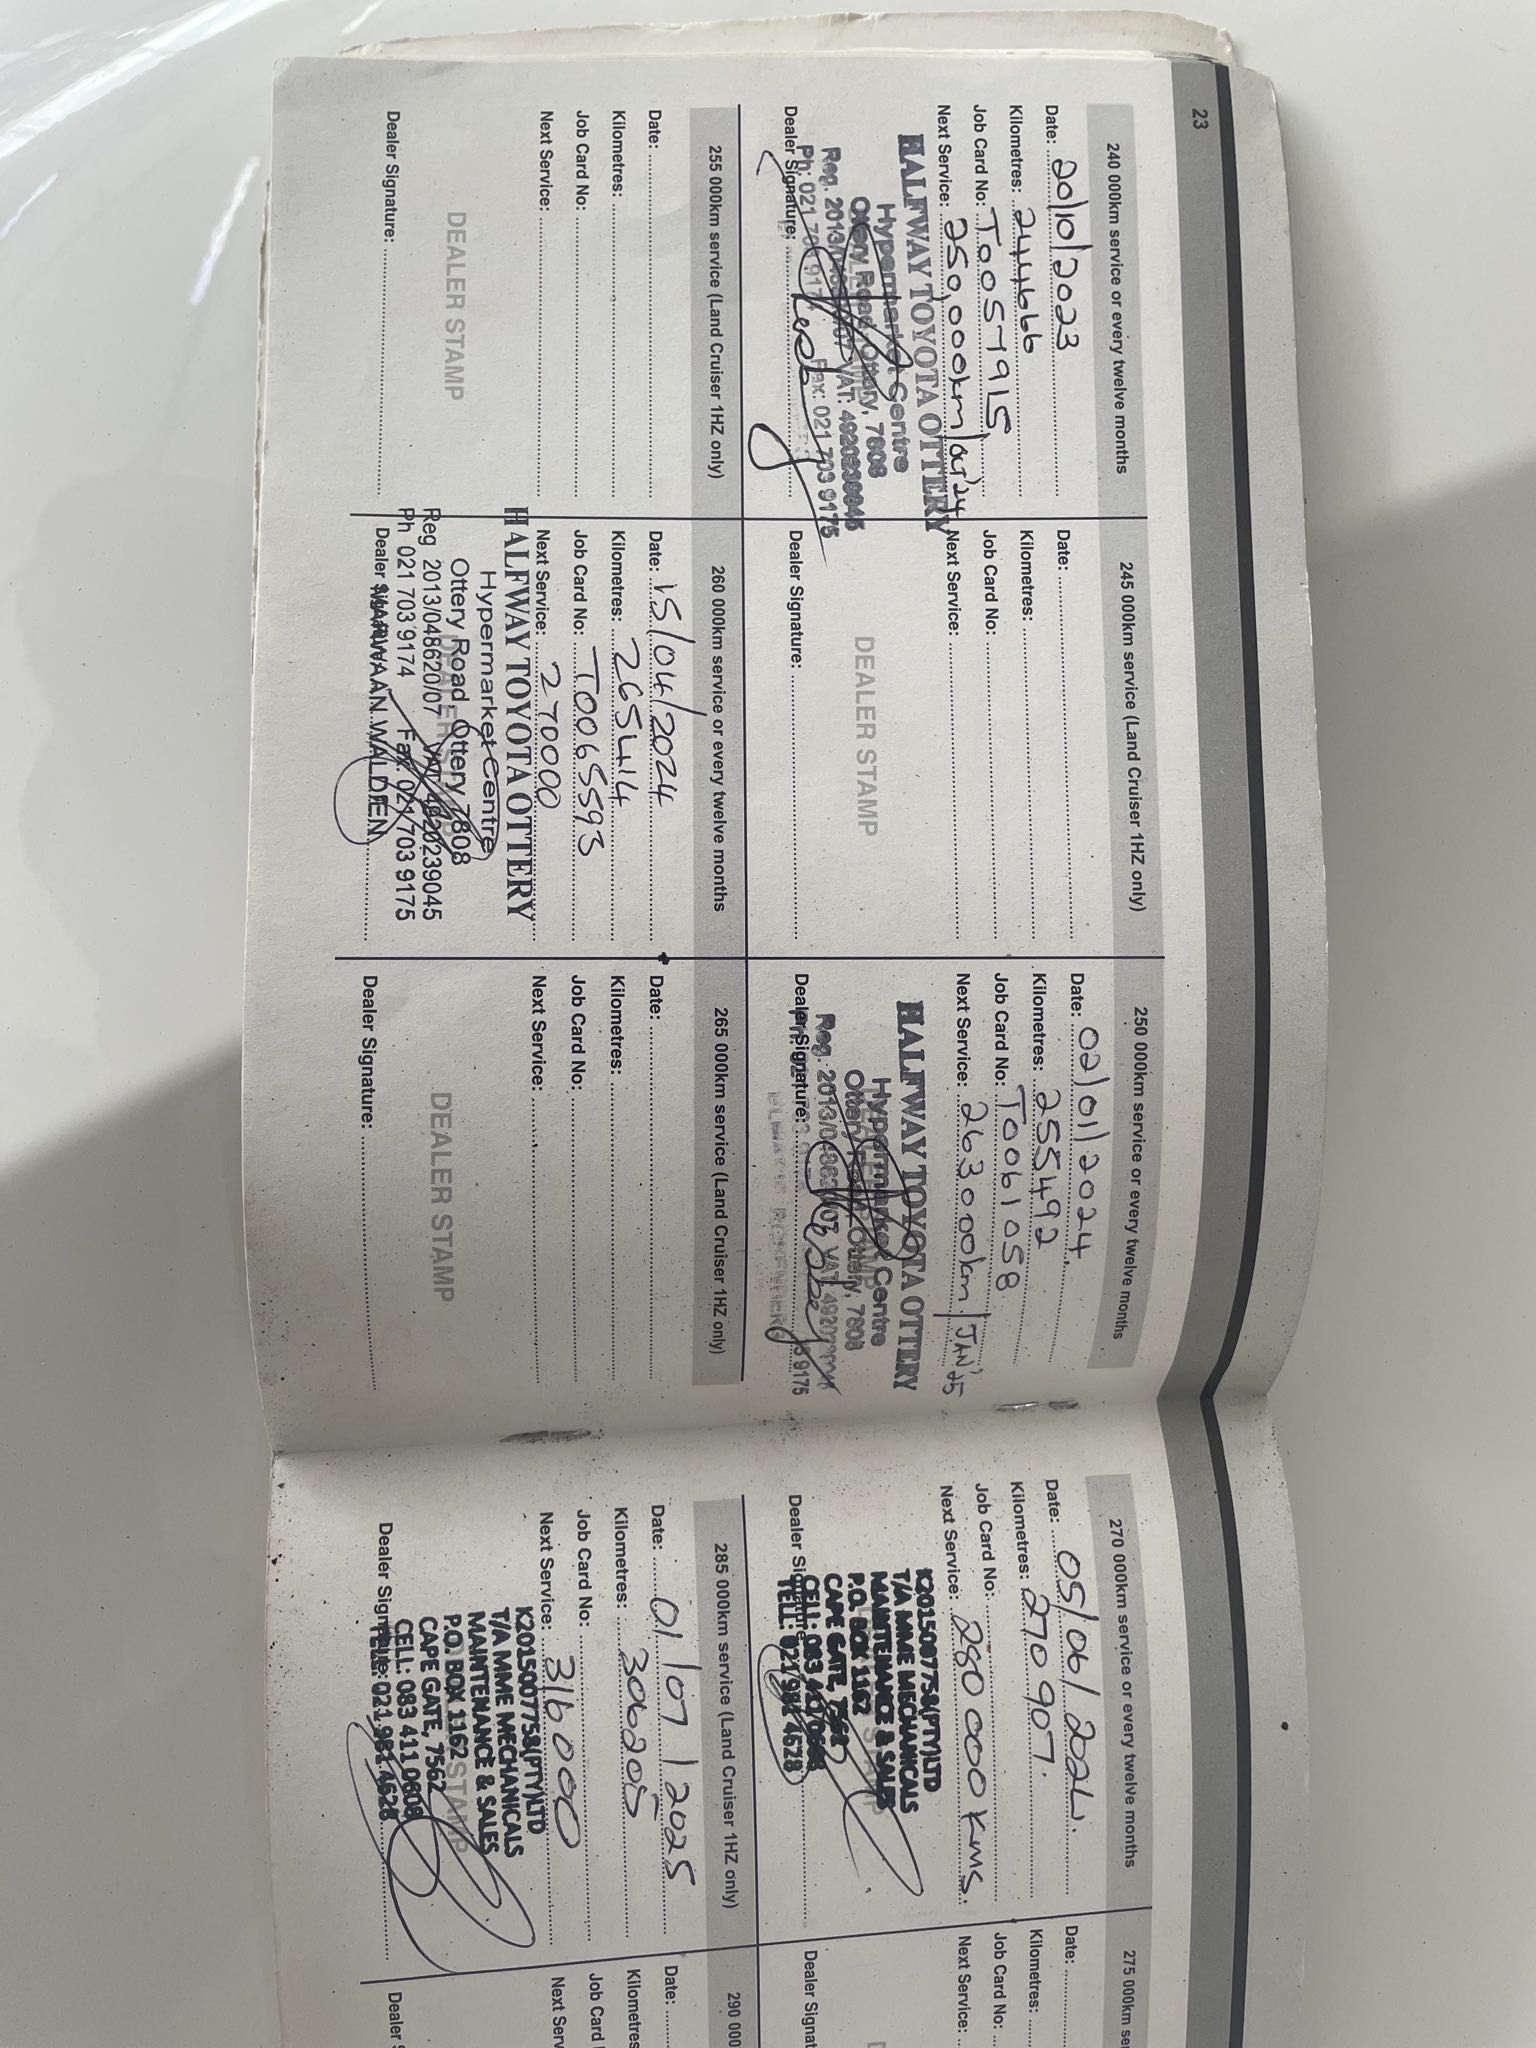 23
240 000km service or every twelve months
Date: 20/10/2023
Kilometres: 244666
Job Card No: T0057915
Next Service: 250,000km/
HALFWAY TOYOTA OTTERY
Hypermarket Centre
Ottery Road, Ottery, 7808
Reg. 2013/ VAT: 4920239045
Ph: 021 703 9174 Fax: 021 703 9175
Dealer Signature:
245 000km service (Land Cruiser 1HZ only)
Date:
Kilometres:
Job Card No:
Next Service:
DEALER STAMP
Dealer Signature:
250 000km service or every twelve months
Date: 02/01/2024.
Kilometres: 255492
Job Card No: T0061058
Next Service: 263000km/JAN'25
HALFWAY TOYOTA OTTERY
Hypermarket Centre
Ottery Road, Ottery, 7808
Reg. 2013/048620/07 VAT
9175
Dealer Signature:
255 000km service (Land Cruiser 1HZ only)
Date:
Kilometres:
Job Card No:
Next Service:
DEALER STAMP
Dealer Signature:
260 000km service or every twelve months
Date: 15/04/2024
Kilometres: 265414
Job Card No: T0065593
Next Service: 270000
HALFWAY TOYOTA OTTERY
Hypermarket Centre
Ottery Road, Ottery 7808
Reg 2013/048620/07 VAT 4920239045
Ph 021 703 9174 Fax: 021 703 9175
Dealer
MARWAAN WALDIEN
265 000km service (Land Cruiser 1HZ only)
Date:
Kilometres:
Job Card No:
Next Service:
DEALER STAMP
Dealer Signature:
270 000km service or every twelve months
Date: 05/06/2024.
Kilometres: 270907.
Job Card No:
Next Service: 280 000 Kms.
K2015007758(PTY)LTD
T/A MME MECHANICALS
MAINTENANCE & SALES
P.O. BOX 1162
CAPE GATE, 7562
CELL: 083 411 0608
TELL: 021 981 4628
Dealer Signature
275 000km ser
Date:
Kilometres:
Job Card No:
Next Service:
Dealer Signat
285 000km service (Land Cruiser 1HZ only)
Date: 01/07/2025
Kilometres: 306205
Job Card No:
Next Service: 316000
K2015007758(PTY)LTD
T/A MME MECHANICALS
MAINTENANCE & SALES
P.O. BOX 1162
STAMP
CAPE GATE, 7562
CELL: 083 411 0608
TELL: 021 981 4628
Dealer Signature:
290 000
Date:
Kilometres:
Job Card
Next Serv
Dealer S